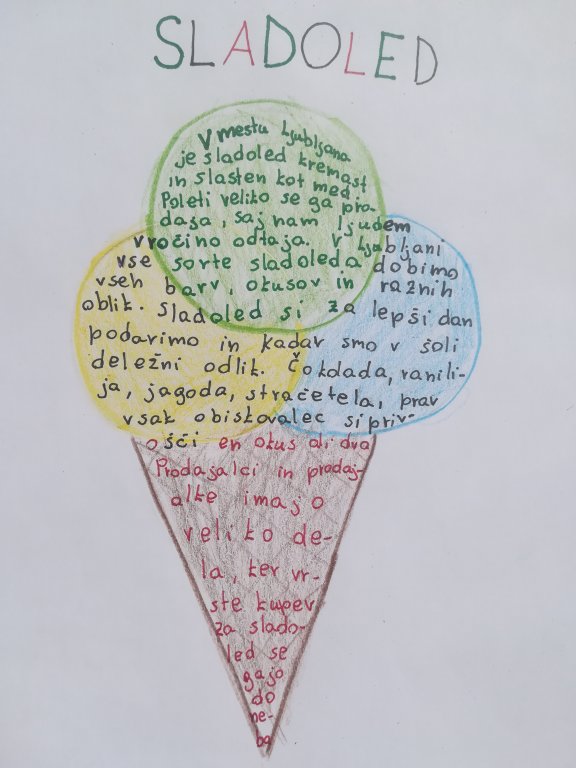 SLADOLED
V mestu Ljubljana
je sladoled kremast
in slasten kot med.
Poleti veliko se ga pro-
daja, saj nam ljudem
vročino odtaja. V Ljubljani
vse sorte sladoleda dobimo
vseh barv, okusov in raznih
oblik. Sladoled si za lepši dan
podarimo in kadar smo v šoli
deležni odlik. Čokolada, vanili-
ja, jagoda, stračetela, prav
vsak obiskovalec si priv-
ošči en okus ali dva
Prodajalci in prodaj-
alke imajo
veliko de-
la, ker vr-
ste kupcev
za slado-
led se
gajo
do
ne-
ba